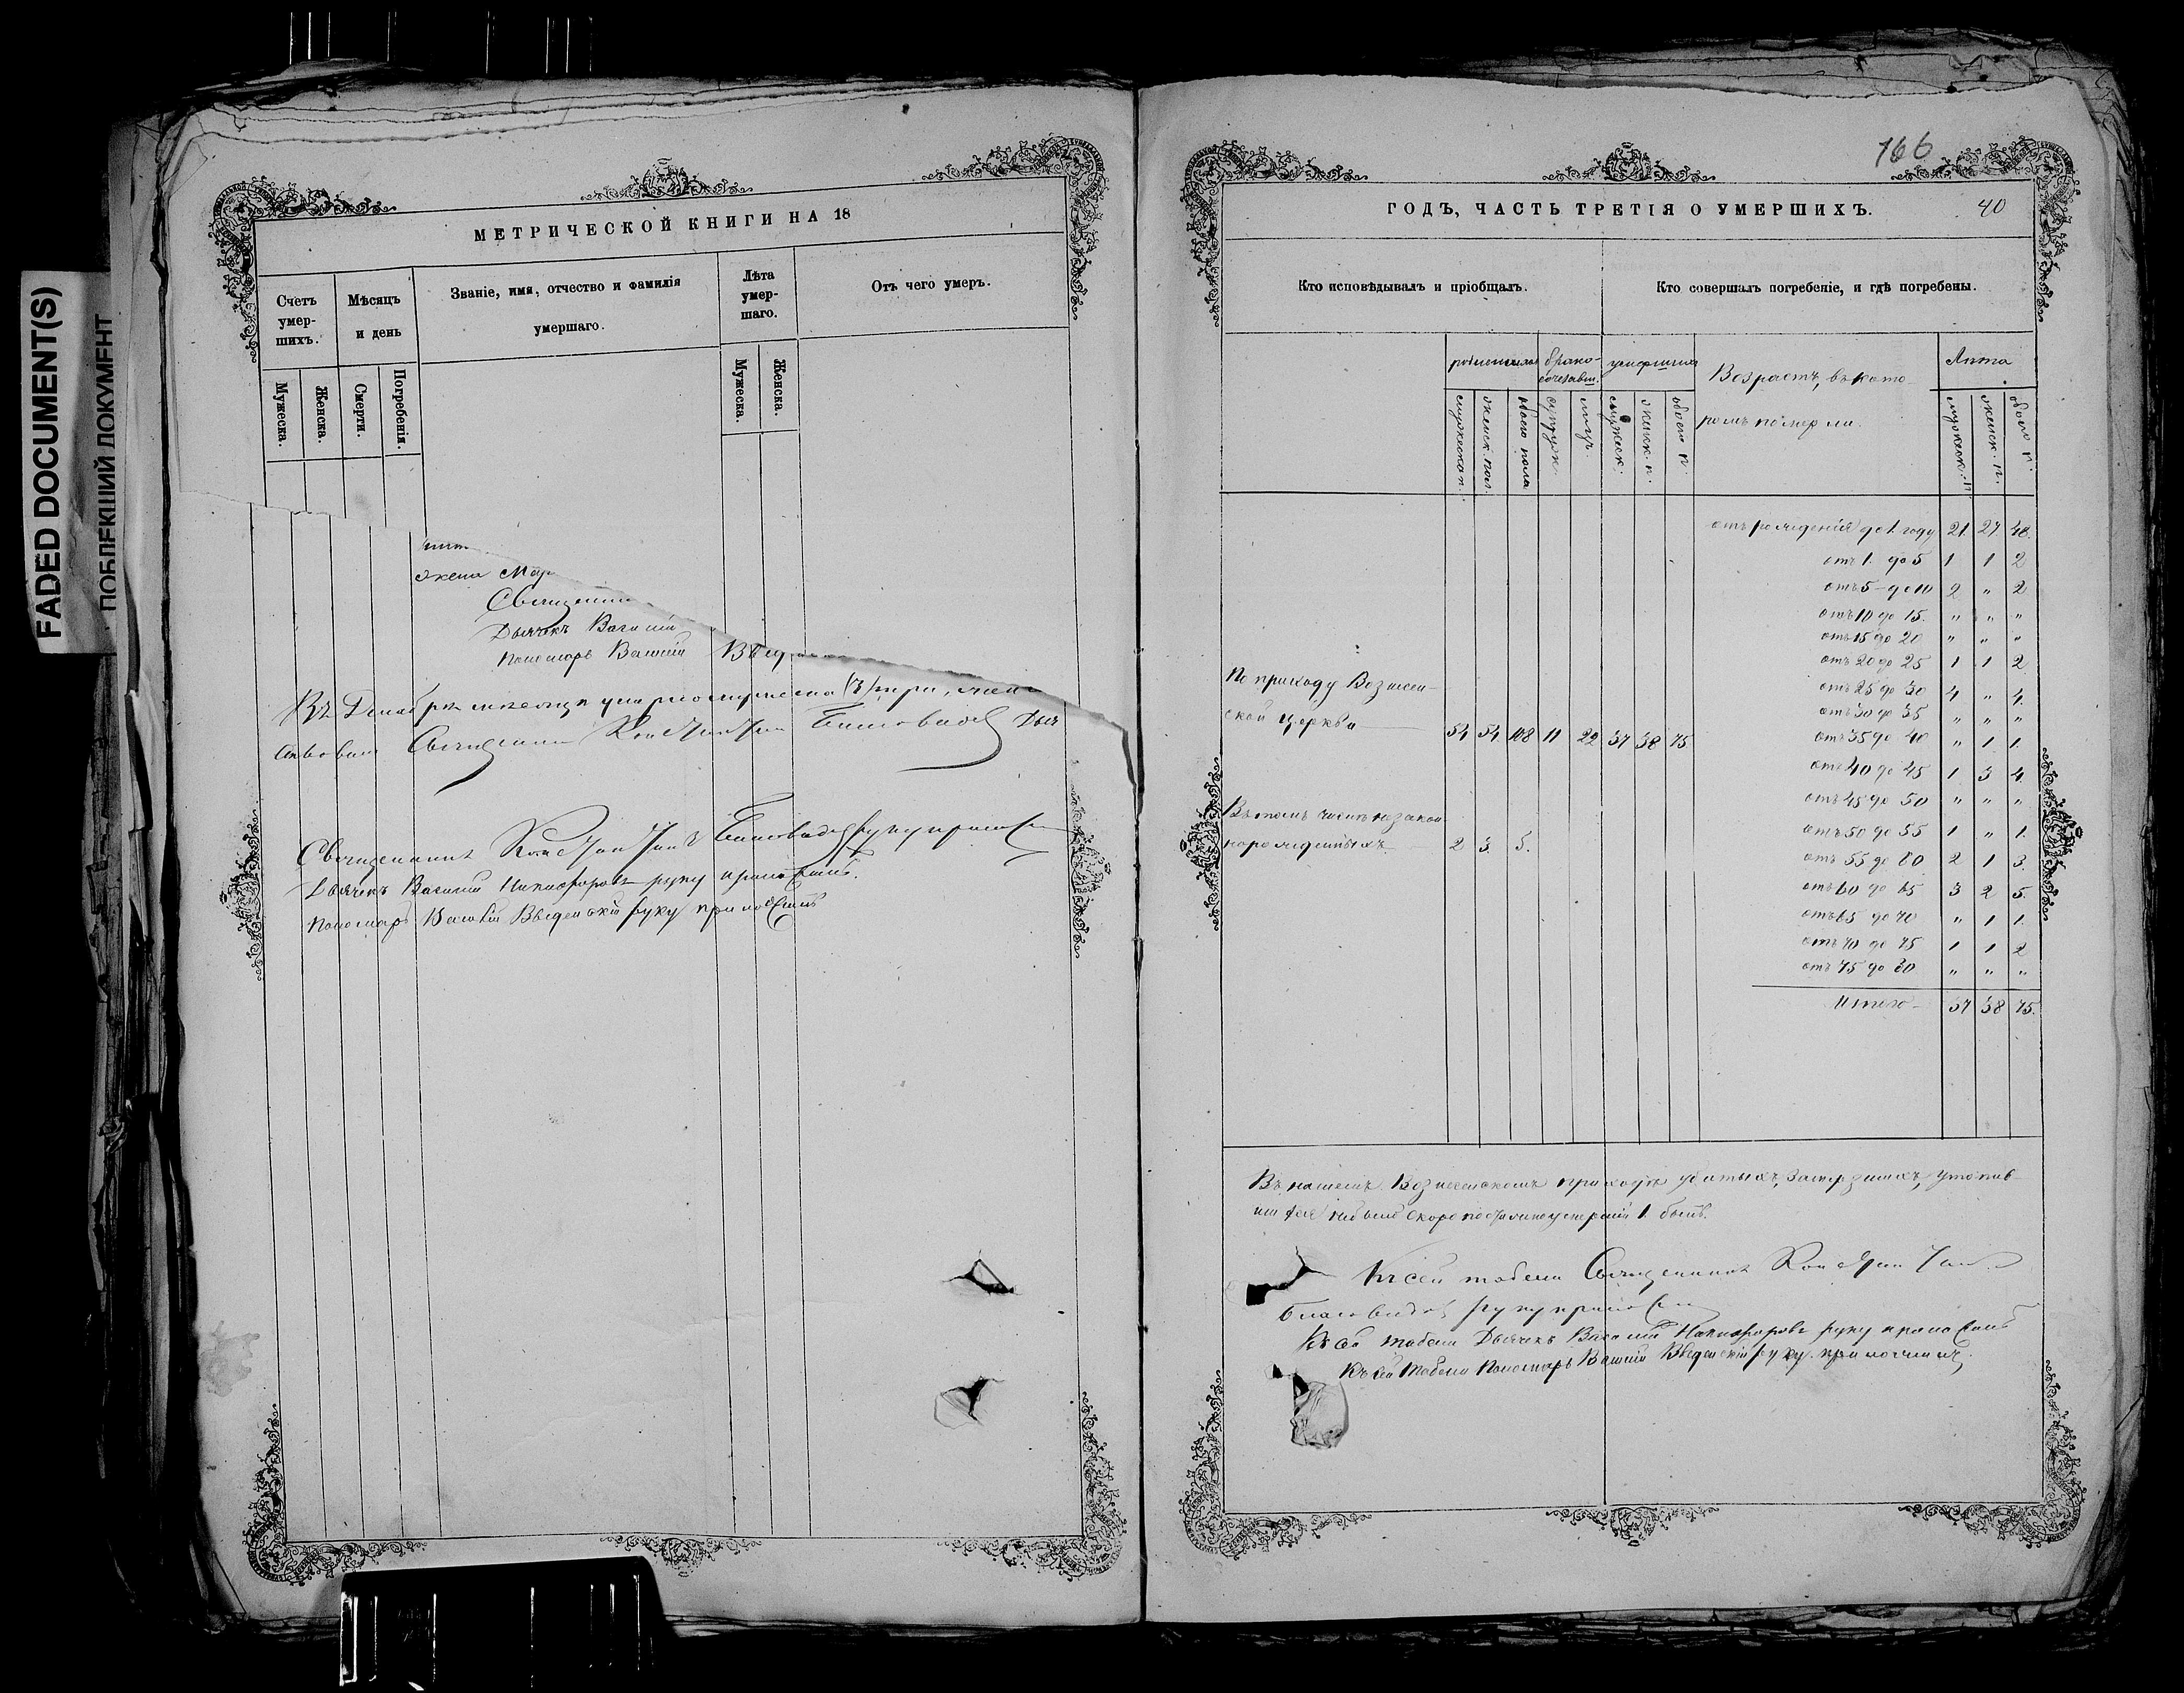 FADED DOCUMENT(S)
ПОБЛЕКШИЙ ДОКУМЕНТ
МЕТРИЧЕСКОЙ КНИГИ НА 18
Счетъ умер-шихъ.
Мѣсяцъ и день
Званіе, имя, отчество и фамилія
умершаго.
Лѣта умер-шаго.
Отъ чего умеръ.
Мужеска.
Женска.
Смерти.
Погребенія.
Мужеска.
Женска.
жена Мар
Священни
Дьячекъ Васили
Пономарь Василій Введ
Въ Декабрѣ мѣсяцѣ умерло мужеска (3) три, жен
Священникъ Константинъ
Священникъ Константинъ руку приложи
Дьячекъ Василій Никифоровъ руку приложилъ.
Пономарь Василій Введенскій руку приложилъ
166
ГОДЪ, ЧАСТЬ ТРЕТІЯ О УМЕРШИХЪ.
40
Кто исповѣдывалъ и пріобщалъ.
Кто совершалъ погребеніе, и гдѣ погребены.
родившихся
брако-
сочетавш.
умершихъ
Возрастъ, въ кото-
ромъ померли.
Лѣта
мужеска п.
женск. пол.
обоего пола
супруж.
лицъ.
мужеск.
женск. п.
обоего п.
мужеск. п.
женск. п.
обоего п.
отъ рожденія до 1. году 21. 27. 48.
отъ 1. до 5 1 1 2
отъ 5 до 10 2 " 2
отъ 10 до 15. " " "
отъ 15 до 20 " " "
отъ 20 до 25 1 1 2
отъ 25 до 30 4 " 4.
отъ 30 до 35 " " "
отъ 35 до 40 " 1 1.
отъ 40 до 45 1 3 4.
отъ 45 до 50 " " "
отъ 50 до 55 1 " 1.
отъ 55 до 60 2 1 3.
отъ 60 до 65 3 2 5.
отъ 65 до 70 " 1 1.
отъ 70 до 75 1 1 2
отъ 75 до 80 " " "
Итого 37 38 75.
По приходу Вознесен-
ской церкви 54 54 108 11 22 37 38 75
Въ томъ числѣ незакон
норожденныхъ 2 3. 5.
Въ нашемъ Вознесенскомъ приходѣ убитыхъ, замерзшихъ, утопив-
шихся небыло скоропостижно умершій 1. былъ.
Къ сей табели Священникъ Константинъ
руку приложи
Къ сей табели Дьячекъ Василій Никифоровъ руку приложилъ
Къ сей табели Пономарь Василій Введенскій руку приложилъ,